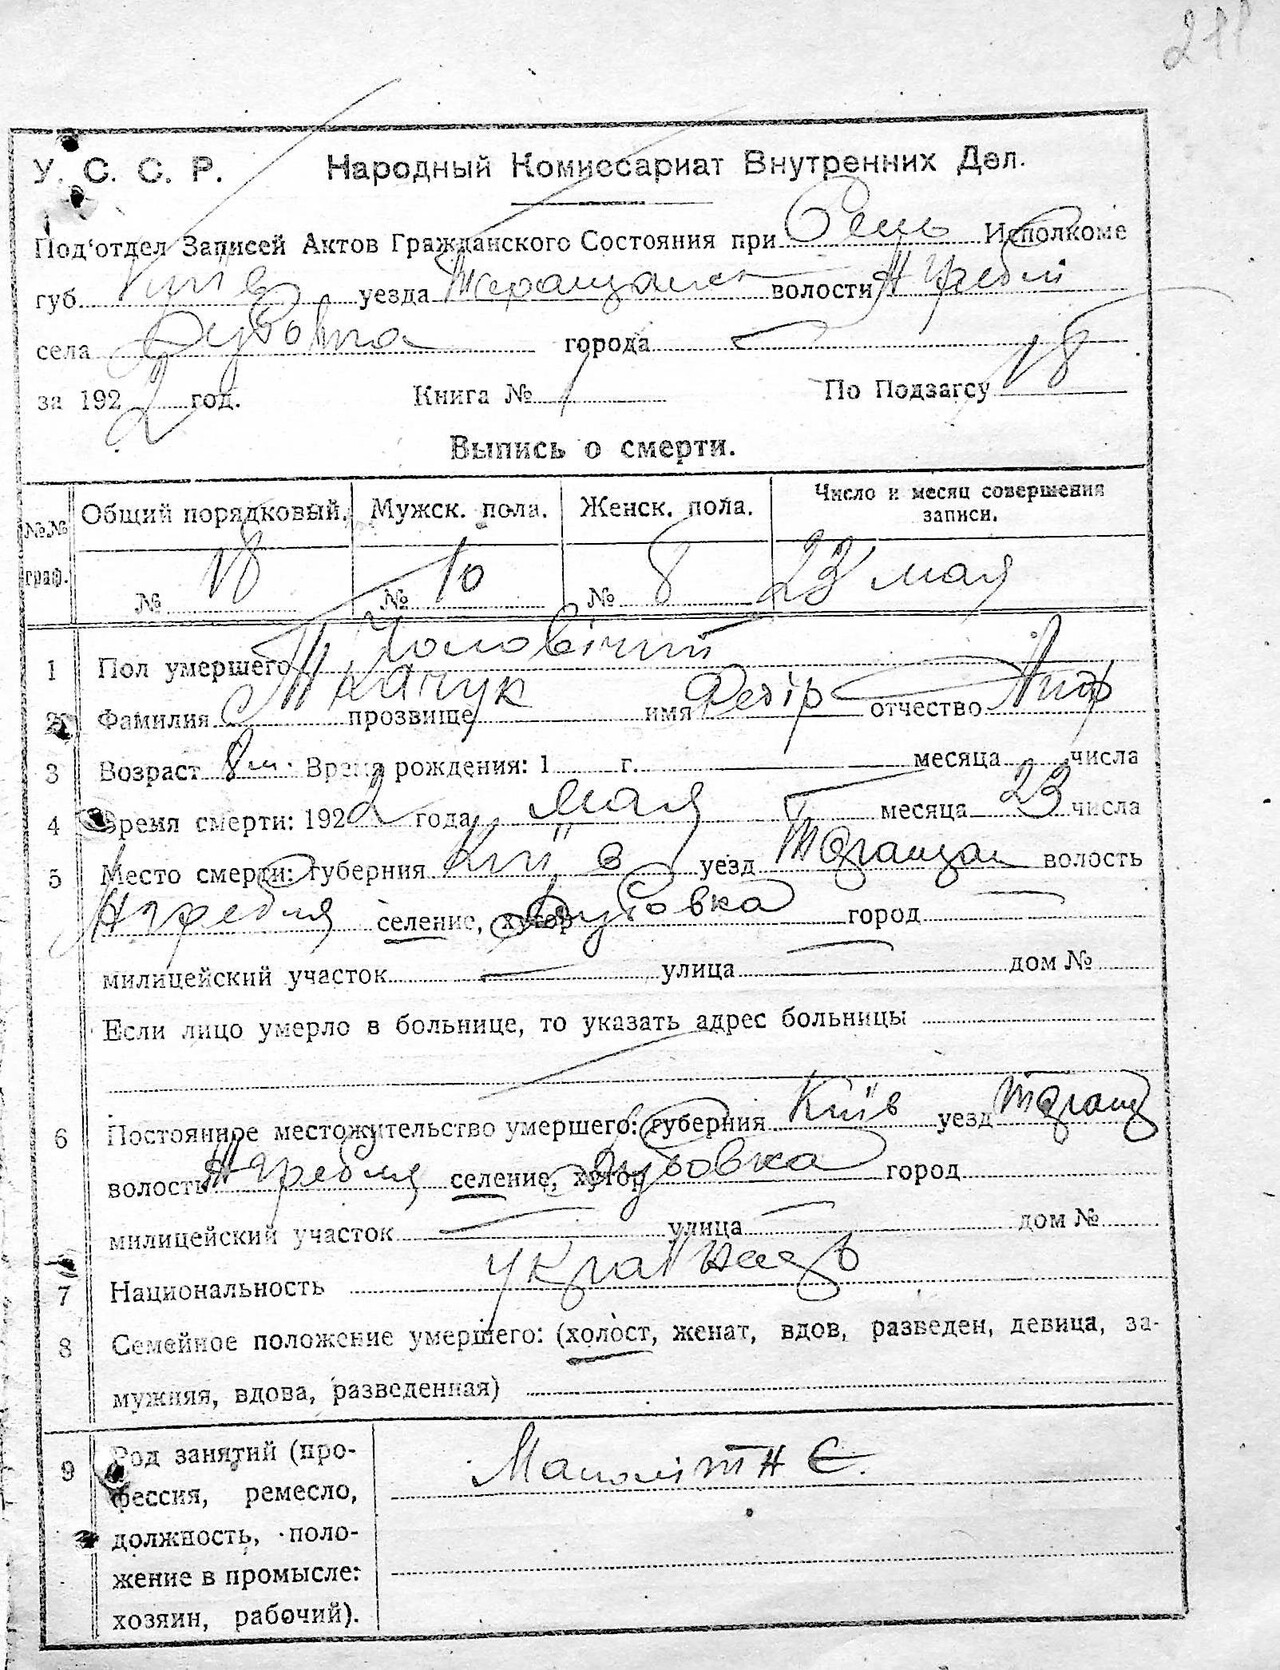 211
У. С. С. Р. Народный Комиссариат Внутренних Дел.
Под'отдел Записей Актов Гражданского Состояния при Сель Исполкоме
губ. Київ уезда Таращанск волости Н Гребля
села Дубовка города
за 1922 год. Книга № 1 По Подзагсу 18
Выпись о смерти.
№№ граф. Общий порядковый. Мужск. пола. Женск. пола. Число и месяц совершения записи.
№ 18 № 10 № 8 23 мая
1 Пол умершего Чоловічий
2 Фамилия Ткачук прозвище имя Федір отчество
3 Возраст 8 м. Время рождения: 1 г. месяца числа
4 Время смерти: 1922 года мая месяца 23 числа
5 Место смерти: губерния Київ уезд Таращан волость
Н гребля селение, хутор Дубовка город
милицейский участок улица дом №
Если лицо умерло в больнице, то указать адрес больницы
6 Постоянное местожительство умершего: губерния Київ уезд Таращ
волость Н гребля селение, хутор Дубовка город
милицейский участок улица дом №
7 Национальность
8 Семейное положение умершего: (холост, женат, вдов, разведен, девица, за-
мужняя, вдова, разведенная)
9 Род занятий (про- Малолітнє.
фессия, ремесло,
должность, поло-
жение в промысле:
хозяин, рабочий).